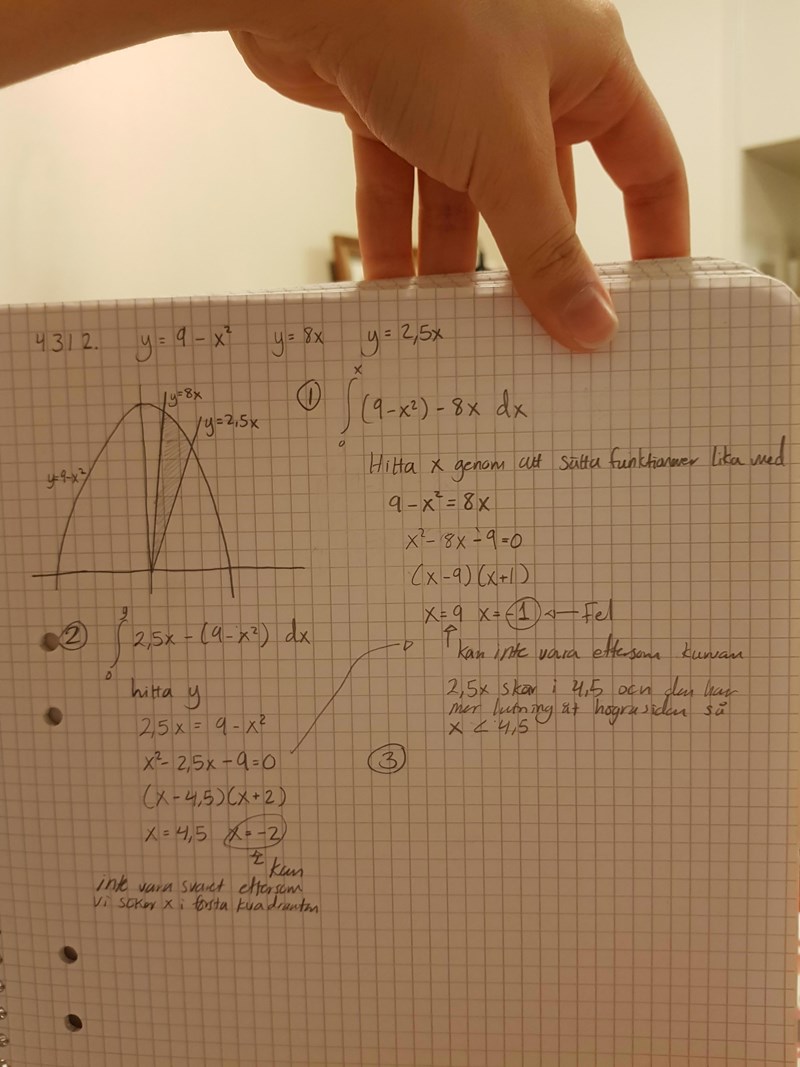 4312. y = 9 - x² y = 8x y = 2,5x
y=8x
y=2,5x
y=9-x²
① ∫₀ˣ (9-x²) - 8x dx
Hitta x genom att sätta funktionner lika med
9 - x² = 8x
x² - 8x - 9 = 0
(x-9)(x+1)
x = 9 x = -1 ← Fel
kan inte vara eftersom kurvan
2,5x skär i 4,5 och den har
mer lutning åt högra sidan så
x < 4,5
② ∫₀⁹ 2,5x - (9-x²) dx
hitta y
2,5x = 9 - x²
x² - 2,5x - 9 = 0
(x-4,5)(x+2)
x = 4,5 x = -2
kan
inte vara svaret eftersom
vi söker x i första kvadranten
③